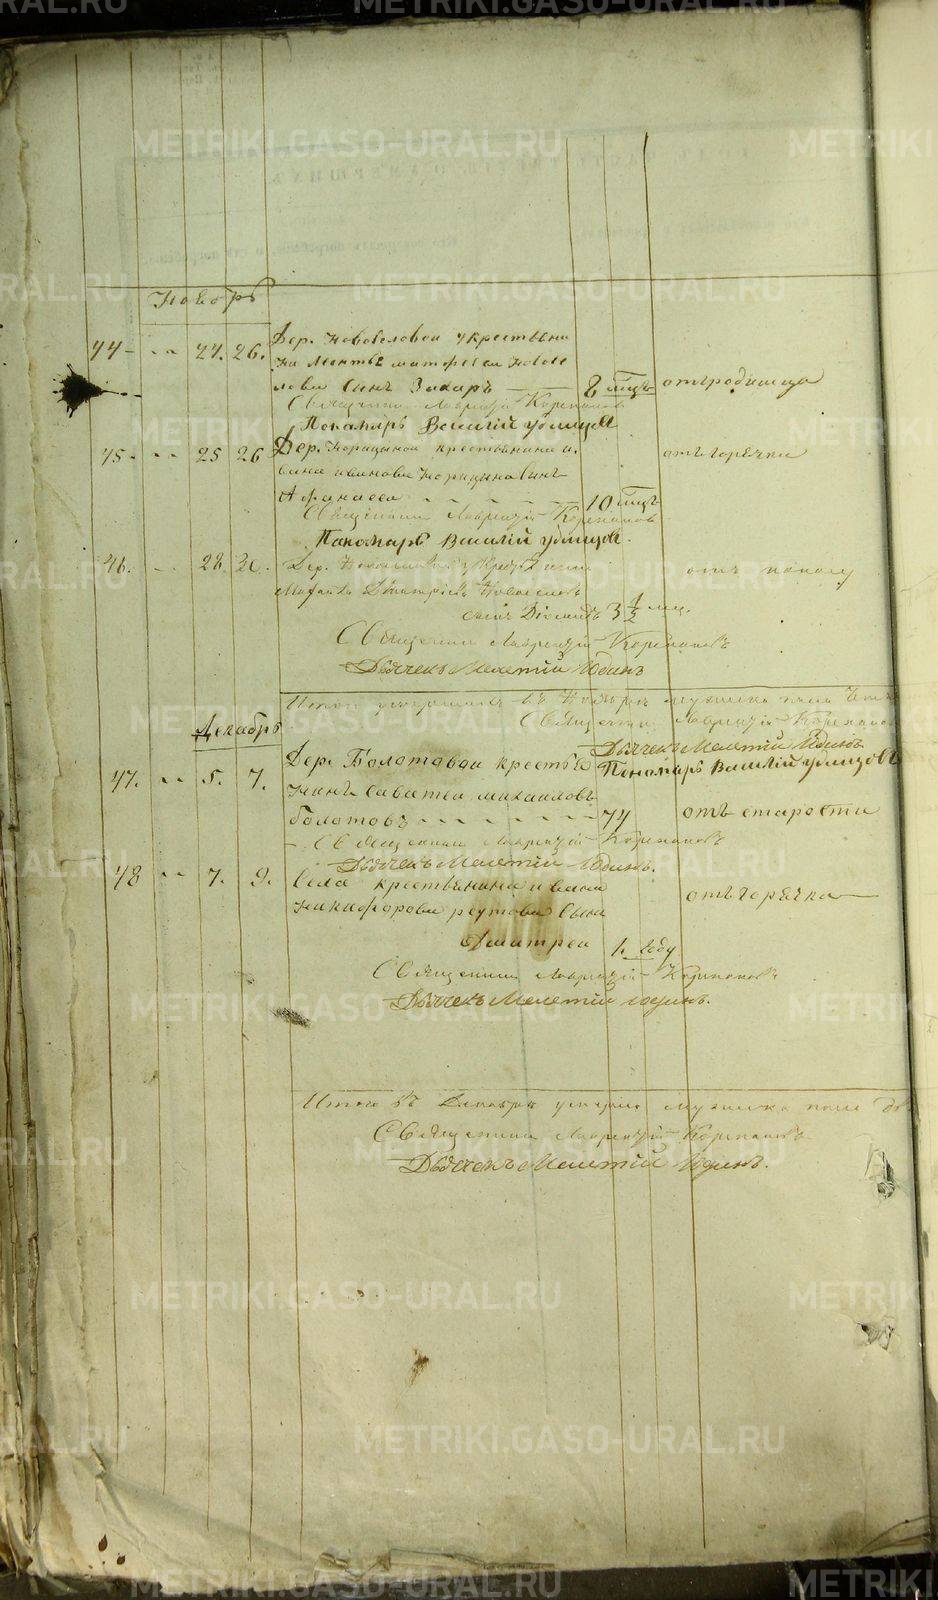 METRIKI.GASO-URAL.RU
Ноябрь
44 - - - 24. 26. Дер. Новоселовой у крестьяни
на Леонтья Матфеева Новосе
лова сынъ Захаръ 8 мцъ отъ родимца
Священникъ Лаврентій Корепановъ
Пономарь Василій Удинцовъ
45 - - - 25 26 Дер. крестьянина
Ивановы сынъ отъ горячки
Афанасей - - - - 10 мцъ
Священникъ Лаврентій Корепановъ
Пономарь Василій Удинцовъ.
46. - - 28. Дер. отъ поносу
Новоселовъ
сынъ 3 1/2 мц.
Священникъ Лаврентій Корепановъ
Дьячекъ Мелетій Юдинъ
Итого умершихъ въ Ноябрѣ мужска пола
Священникъ Лаврентій Корепановъ
Дьячекъ Мелетій Юдинъ
Пономарь Василій Удинцовъ
Декабрь
47. - - 5. 7. Дер. Болотовой крестья
нинъ Саватей Михайловъ
Болотовъ - - - - - - - 74 отъ старости
Священникъ Лаврентій Корепановъ
Дьячекъ Мелетій Юдинъ.
48 - - 7. 9. Села крестьянина Ивана отъ горячка
Никифорова Реутова сынъ
Дмитрей 1. году
Священникъ Лаврентій Корепановъ
Дьячекъ Мелетій Юдинъ.
Итого въ Декабрѣ умерло мужска пола
Священникъ Лаврентій Корепановъ
Дьячекъ Мелетій Юдинъ.